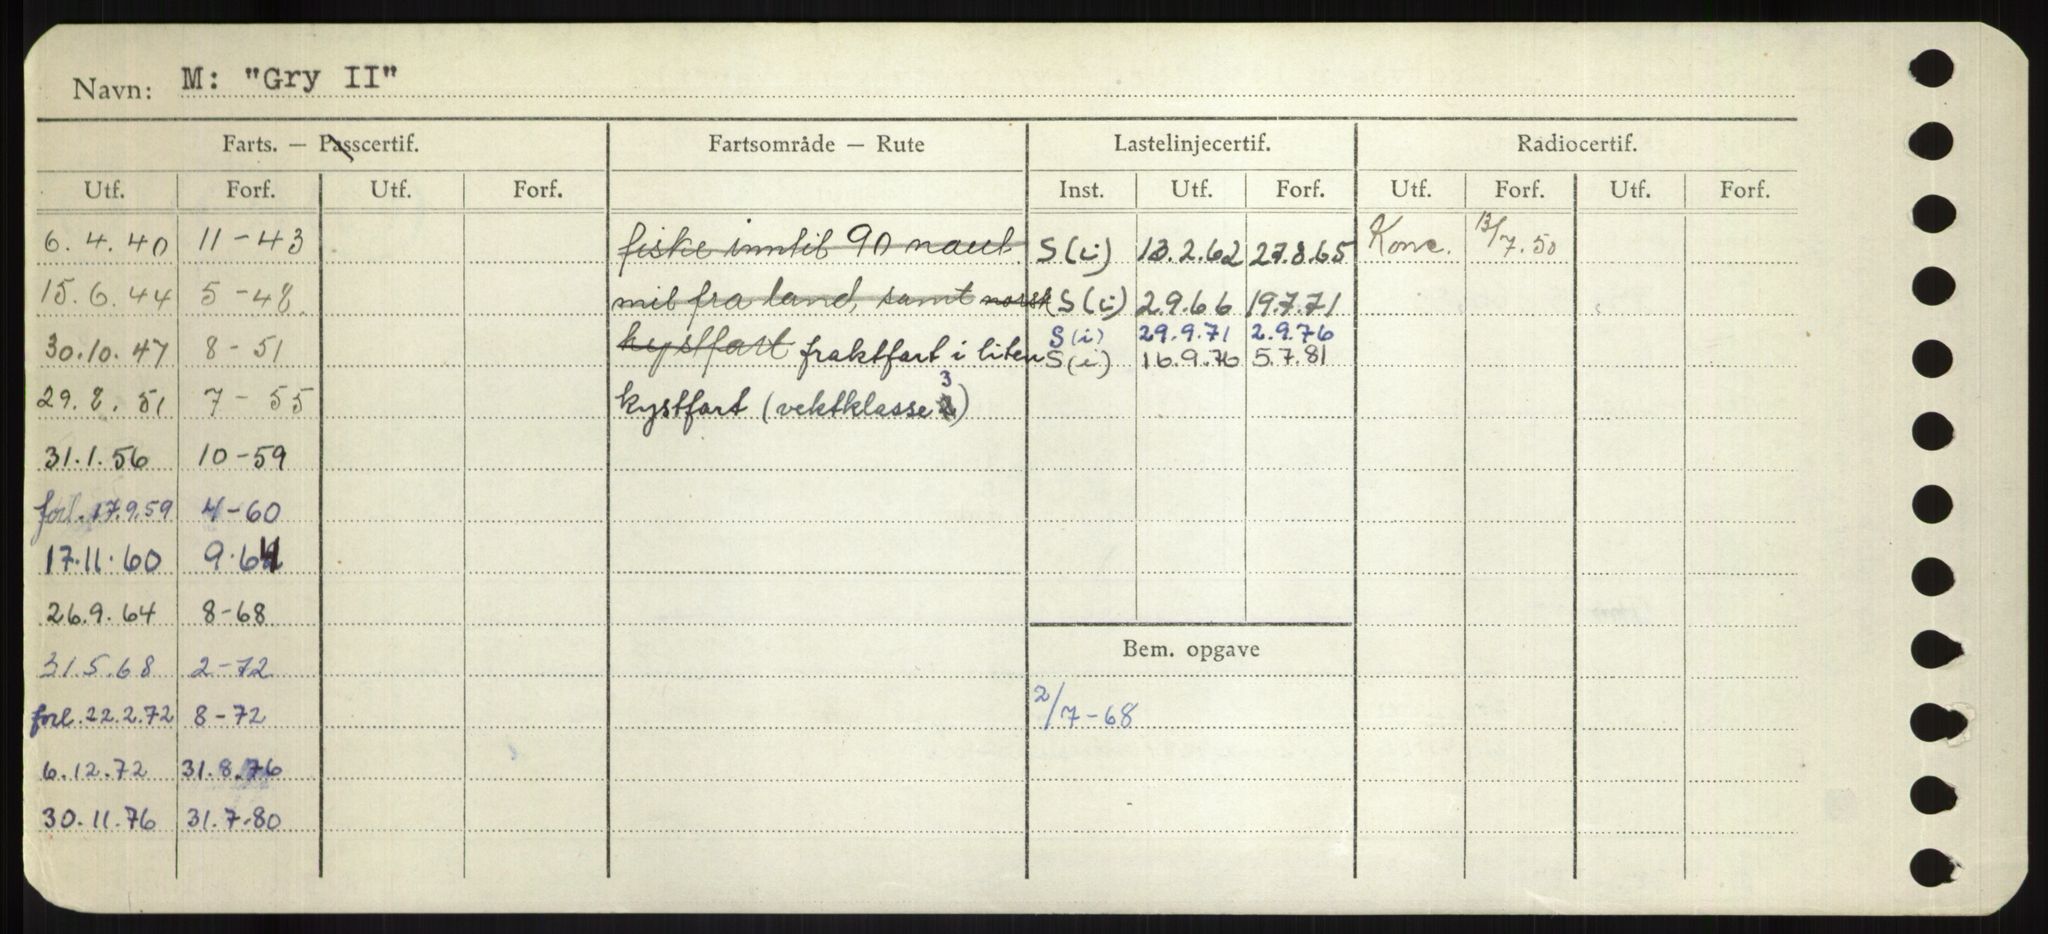 Navn: M: "Gry II"
Farts. — Passcertif. Fartsområde — Rute Lastelinjecertif. Radiocertif.
Utf. Forf. Utf. Forf. Inst. Utf. Forf. Utf. Forf. Utf. Forf.
6.4.40 11-43 fiske inntil 90 naut. S(i) 13.2.62 27.8.65 Konc. 13/7.50
15.6.44 5-48. mil fra land, samt norsk S(i) 2.9.66 19.7.71
S(i) 29.9.71 2.9.76
30.10.47 8-51 kystfart fraktfart i liten S(i) 16.9.76 5.7.81
29.8.51 7-55 kystfart (vektklasse 3)
31.1.56 10-59
forl. 17.9.59 4-60
17.11.60 9.64
26.9.64 8-68
31.5.68 2-72 Bem. opgave
forl. 22.2.72 8-72 2/7-68
6.12.72 31.8.76
30.11.76 31.7.80